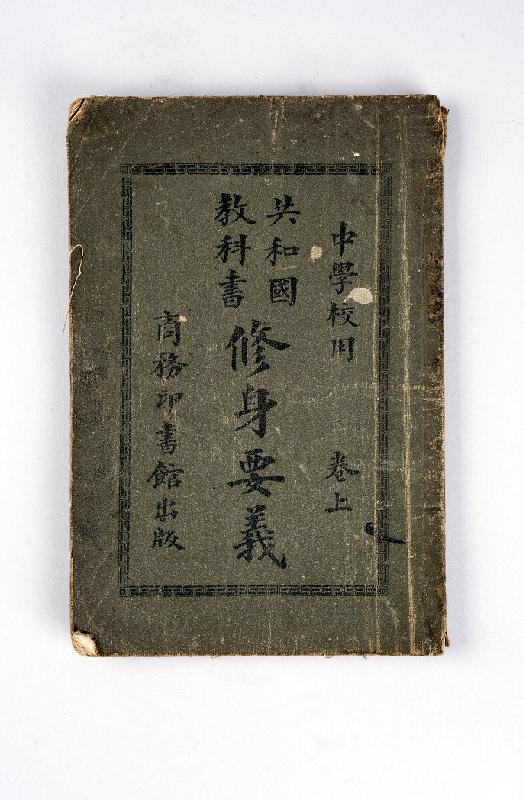 中學校用 卷上
共和國
教科書
修身要義
商務印書館出版